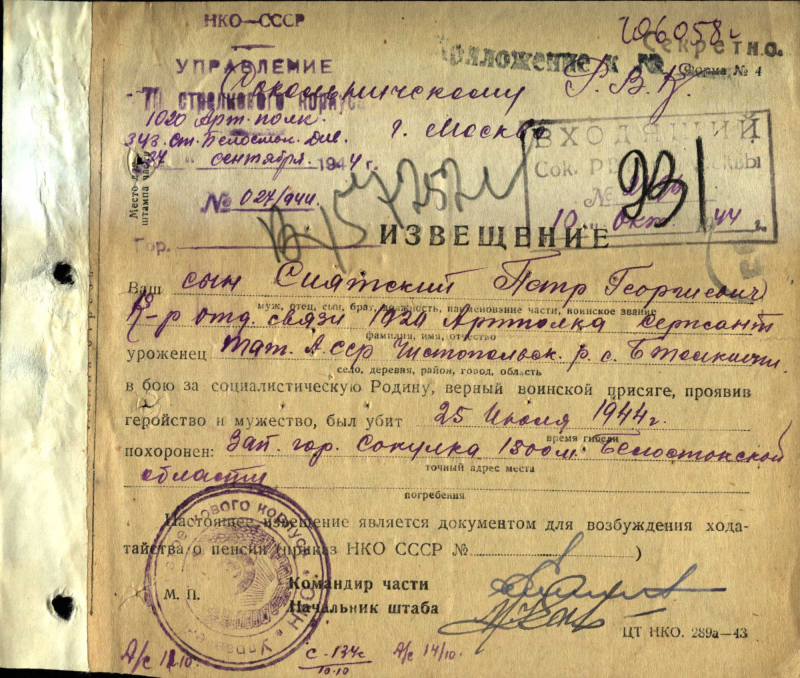 НКО—СССР
УПРАВЛЕНИЕ
70 стрелкового корпуса
1020 Арт. полк
343 ст. Белост. див.
27 " сентября 1944 г.
№ 027/944.
Гор.
Место для штампа части
Секретно.
Приложение к №
Форма № 4
Р. В. К.
г. Москва
ВХОДЯЩИЙ
№ 931
10 окт. 1944 г.
ИЗВЕЩЕНИЕ
Ваш сын Сиятский Петр Георгиевич
муж, отец, сын, брат, должность, наименование части, воинское звание
К-р отд. связи 1020 Артполка сержант
фамилия, имя, отчество
уроженец Тат. АССР Чистопольск. р. с.
село, деревня, район, город, область
в бою за социалистическую Родину, верный воинской присяге, проявив
геройство и мужество, был убит 25 Июля 1944 г.
время гибели
похоронен: Зап. гор. Сокулка 1300 м. Белостокской
точный адрес места
области
погребения
Настоящее извещение является документом для возбуждения хода-
тайства о пенсии (приказ НКО СССР № )
М. П.
Командир части
Начальник штаба
ЦТ НКО. 289а—43
А/с 11/10.
с-134с
10.10
А/с 14/10.